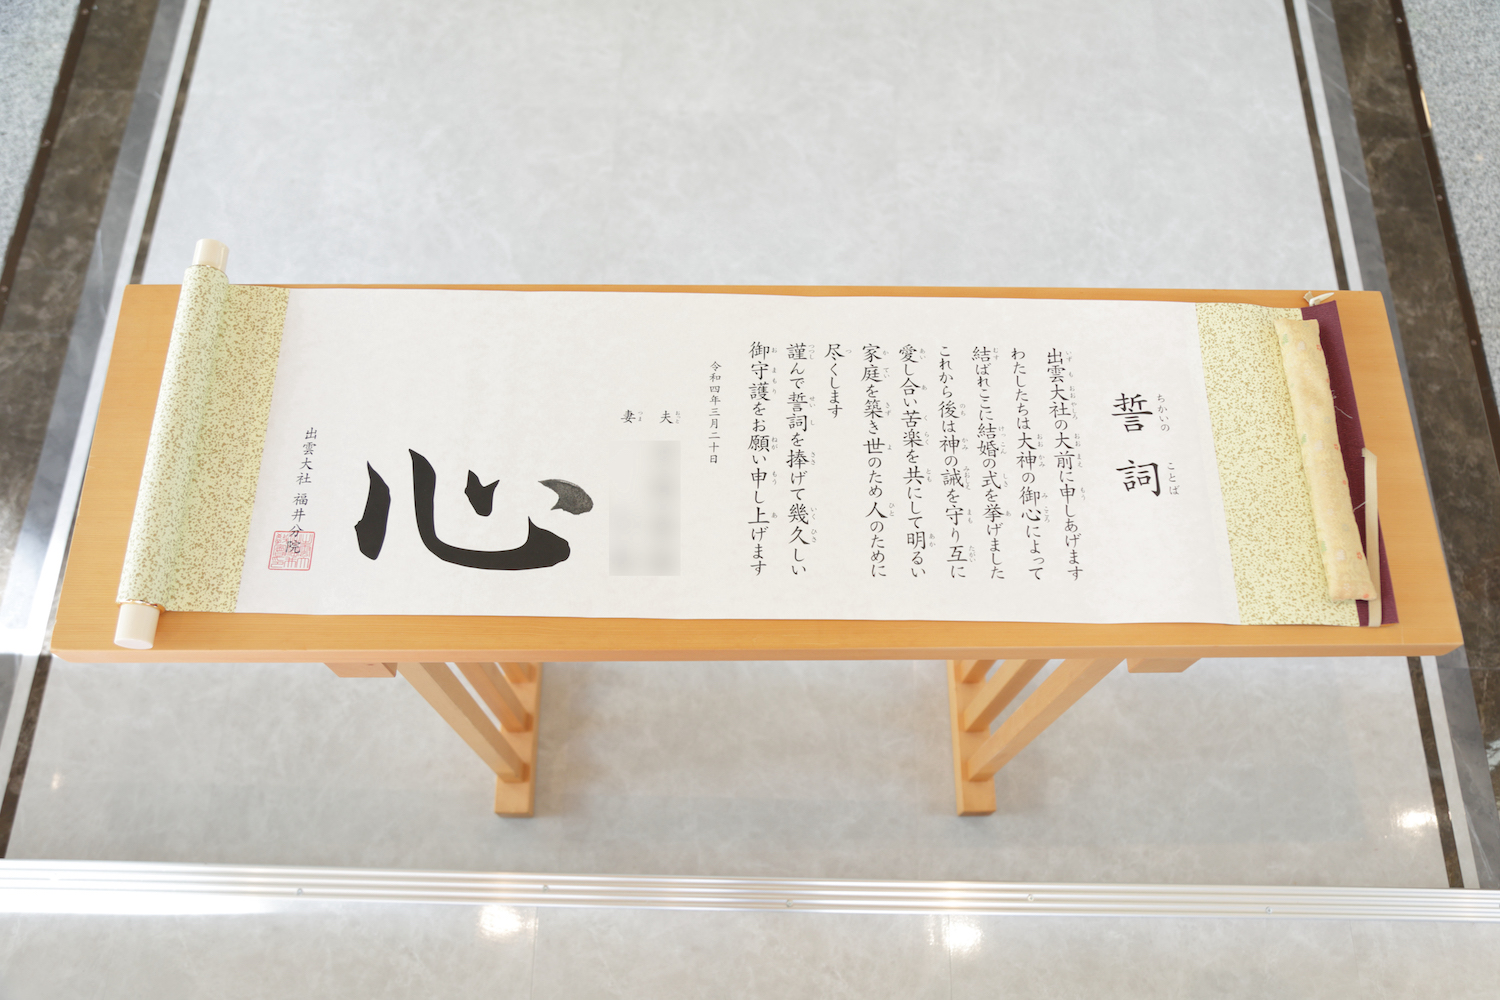 誓詞
ちかいの ことば
出雲大社の大前に申しあげます
わたしたちは大神の御心によって
結ばれここに結婚の式を挙げました
これから後は神の誡を守り互に
愛し合い苦楽を共にして明るい
家庭を築き世のため人のために
尽くします
謹んで誓詞を捧げて幾久しい
御守護をお願い申し上げます
令和四年三月二十日
夫
妻
心
出雲大社 福井分院